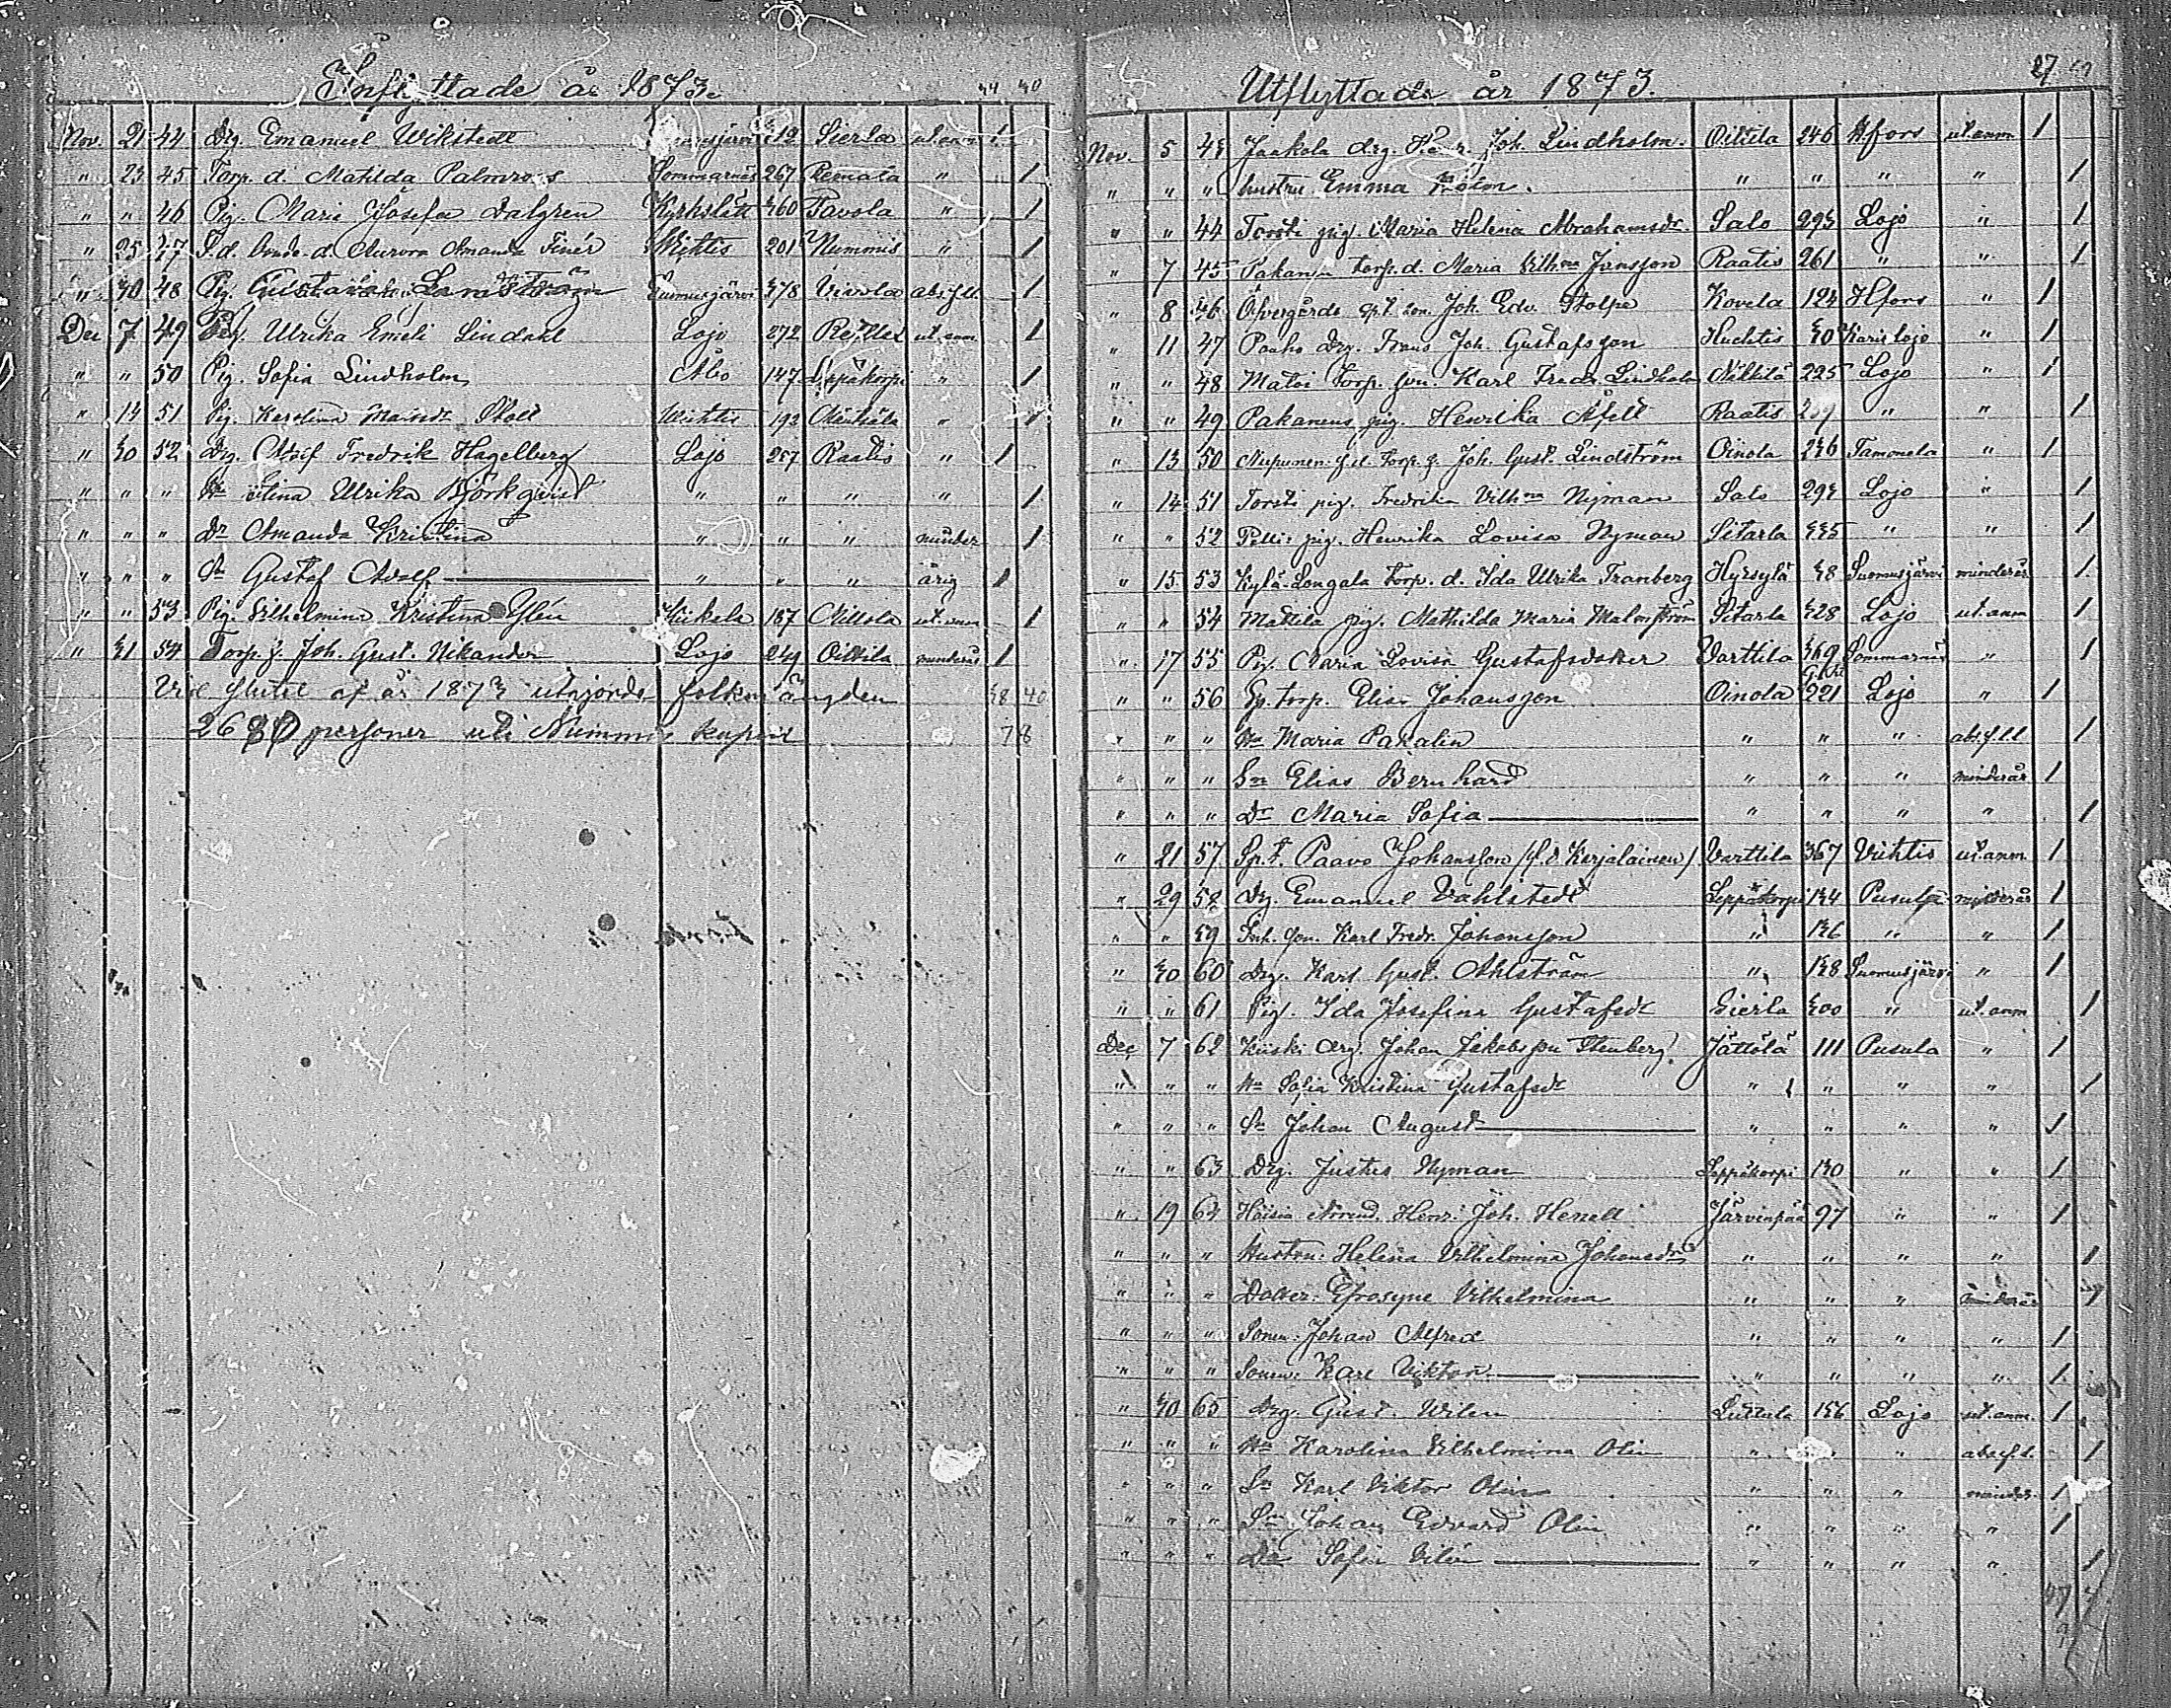 Inflyttade år 1873.
44 40
Nov. 21 44 Drg. Emanuel Wikstedt 312 Sierla ut.anm 1
" 23 45 Torp. d. Matilda Palmroos Sommarnäs 267 Remala " 1
" " 46 Pig. Maria Josefa Dalgren Kyrkslätt 360 Tavola " 1
" 25 47 Aurora Amanda Finér Wichtis 201 Nummis " 1
" 30 48 Pig. Gustava Landström Suomusjärvi 378 Vivola abs.f.ll. 1
Dec 7 49 Pig. Ulrika Emeli Lindahl Lojo 272 ut.anm 1
" " 50 Pig. Sofia Lindholm Åbo 147 Leppäkorpi " 1
" 14 51 Pig. Karolina Wichtis 192 Mäntsälä " 1
" 30 52 Drg. Adolf Fredrik Hagelberg Lojo 257 Raatis " 1
" " " Hu Elina Ulrika Björkqvist " " " " 1
" " " Dr Amanda Kristina " " " minder 1
" " " Sn Gustaf Adolf " " " årig 1
" " 53 Pig. Vilhelmina Kristina Kiikala 187 Millola ut.anm 1
" 31 54 Torp. s. Joh. Gust. Nikander Lojo 249 Oittila minderår 1
Vid slutet af år 1873 utgjorde folkmängden 38 40
2680 personer uti Nummis kapell 78
Utflyttade år 1873.
27
Nov. 5 43 Jaakola drg. Henr. Joh. Lindholm. Oittila 246 Hfors ut.anm 1
" " " hustru Emma " " " " 1
" " 44 Torsti pig. Maria Helena Abrahamsdr. Salo 293 Lojo " 1
" 7 45 Pakanen torp. d. Maria Vilhna Jansson Raatis 261 " " 1
" 8 46 Öfvergårds Joh. Edv. Stolpe Kovela 124 Hfors " 1
" 11 47 Pauho drg. Frans Joh. Gustafsson Huchtis 30 Karis lojo " 1
" " 48 Matoi torp. son. Karl Fredr. Lindholm Näkkilä 225 Lojo " 1
" " 49 Pakanens pig. Henrika Åfelt Raatis 259 " " 1
" 13 50 Nupunen f. d. torp. s. Joh. Gust. Lindström Oinola 236 Tamonela " 1
" 14 51 Torsti pig. Fredrika Vilhna Nyman Salo 293 Lojo " 1
" " 52 Pelli: pig. Henrika Lovisa Nyman Sitarla 335 " " 1
" 15 53 Kylä-Longala torp. d. Ida Ulrika Tranberg Hyrsylä 38 Suomusjärvi minderår 1
" " 54 Mattila pig. Mathilda Maria Malmström Sitarla 328 Lojo ut.anm 1
" 17 55 Pig. Maria Lovisa Gustafsdotter Varttila 369 Sommarnäs " 1
" " 56 Sp. torp. Elias Johansson Oinola 221 Lojo " 1
" " " Hu Maria Paxalin " " " abs.f.ll 1
" " " Sn Elias Bernhard " " " minderår 1
" " " Dr Maria Sofia " " " " 1
" 21 57 Sp. t. Paavo Johansson /f.d Karjalainen/ Varttila 367 Vichtis ut.anm 1
" 29 58 Drg. Emanuel Vahlstedt Leppäkorpi 134 Pusula minderår 1
" " 59 Inh. son. Karl Fredr. Johansson " 136 " " 1
" 30 60 Drg. Karl Gust. Ahlström " 138 Suomusjärvi " 1
" " 61 Pig. Ida Josefina Gustafsdr Sierla 300 " ut.anm 1
Dec 7 62 Kiiski drg. Johan Jakobsson Stenberg Jättölä 111 Pusula " 1
" " " Hu Sofia Kristina Gustafsdr " " " " 1
" " " Sn Johan August " " " " 1
" " 63 Drg. Justus Nyman Leppäkorpi 130 " " 1
" 19 64 Häisiä Arrend. Henr. Joh. Henell Järvenpää 97 " " 1
" " " Hustrun: Helena Vilhelmina Johansdr " " " " 1
" " " Dotter: Efrosyne Vilhelmina " " " minderår 1
" " " Sonen: Johan Alfred " " " " 1
" " " Sonen: Karl Viktor " " " " 1
" 30 65 Drg. Gust. Wilen Luttula 156 Lojo ut.anm. 1
" " " Hu Karolina Vilhelmina Olin " " " abs.f.l. 1
" " " Sn Karl Viktor Olin " " " minder. 1
" " " Sn Johan Edvard Olin " " " " 1
" " " Dr Sofia Vilén " " " " 1